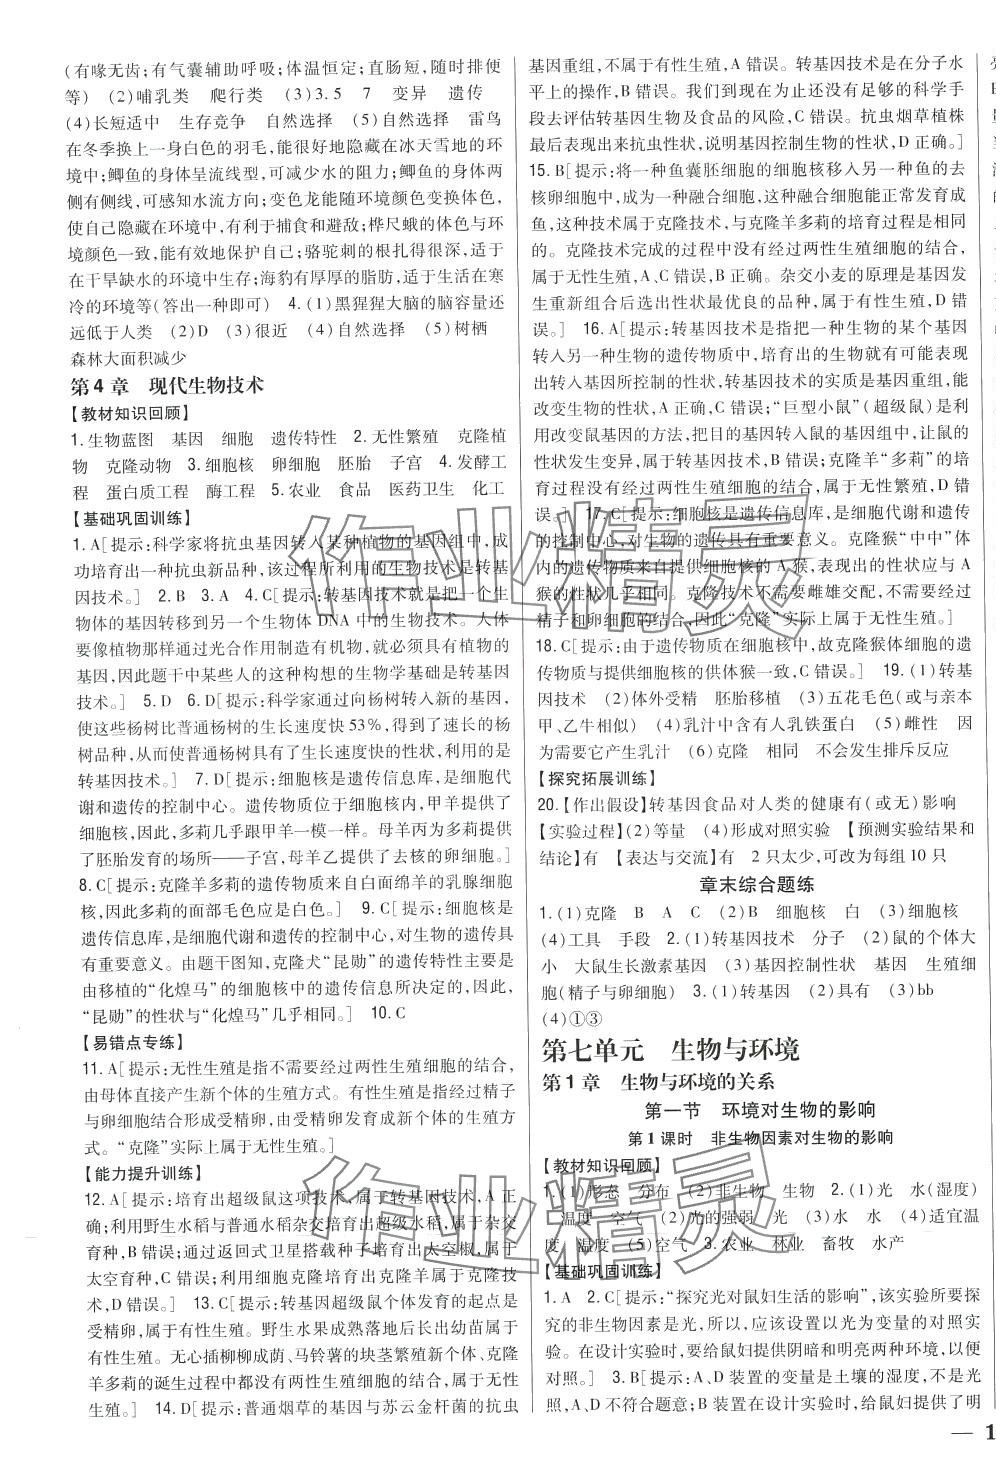 (有喙无齿;有气囊辅助呼吸;体温恒定;直肠短,随时排便
等) (2)哺乳类 爬行类 (3)3.5 7 变异 遗传
(4)长短适中 生存竞争 自然选择 (5)自然选择 雷鸟
在冬季换上一身白色的羽毛,能很好地隐藏在冰天雪地的环
境中;鲫鱼的身体呈流线型,可减少水的阻力;鲫鱼的身体两
侧有侧线,可感知水流方向;变色龙能随环境颜色变换体色,
使自己隐藏在环境中,有利于捕食和避敌;桦尺蛾的体色与环
境颜色一致,能有效地保护自己;骆驼刺的根扎得很深,适于
在干旱缺水的环境中生存;海豹有厚厚的脂肪,适于生活在寒
冷的环境等(答出一种即可) 4.(1)黑猩猩大脑的脑容量还
远低于人类 (2)D (3)很近 (4)自然选择 (5)树栖
森林大面积减少
第4章 现代生物技术
【教材知识回顾】
1.生物蓝图 基因 细胞 遗传特性 2.无性繁殖 克隆植
物 克隆动物 3.细胞核 卵细胞 胚胎 子宫 4.发酵工
程 蛋白质工程 酶工程 5.农业 食品 医药卫生 化工
【基础巩固训练】
1.A[提示:科学家将抗虫基因转入某种植物的基因组中,成
功培育出一种抗虫新品种,该过程所利用的生物技术是转基
因技术。] 2.B 3.A 4.C[提示:转基因技术就是把一个生
物体的基因转移到另一个生物体 DNA 中的生物技术。人体
要像植物那样通过光合作用制造有机物,就必须具有植物的
基因,因此题干中某些人的这种构想的生物学基础是转基因
技术。] 5.D 6.D[提示:科学家通过向杨树转入新的基因,
使这些杨树比普通杨树的生长速度快 53%,得到了速长的杨
树品种,从而使普通杨树具有了生长速度快的性状,利用的是
转基因技术。] 7.D[提示:细胞核是遗传信息库,是细胞代
谢和遗传的控制中心。遗传物质位于细胞核内,甲羊提供了
细胞核,因此,多莉几乎跟甲羊一模一样。母羊丙为多莉提供
了胚胎发育的场所——子宫,母羊乙提供了去核的卵细胞。]
8.C[提示:克隆羊多莉的遗传物质来自白面绵羊的乳腺细胞
核,因此多莉的面部毛色应是白色。] 9.C[提示:细胞核是
遗传信息库,是细胞代谢和遗传的控制中心,对生物的遗传具
有重要意义。由题干图知,克隆犬“昆勋”的遗传特性主要是
由移植的“化煌马”的细胞核中的遗传信息所决定的,因此,
“昆勋”的性状与“化煌马”几乎相同。] 10.C
【易错点专练】
11.A[提示:无性生殖是指不需要经过两性生殖细胞的结合,
由母体直接产生新个体的生殖方式。有性生殖是指经过精子
与卵细胞结合形成受精卵,由受精卵发育成新个体的生殖方
式。“克隆”实际上属于无性生殖。]
【能力提升训练】
12.A[提示:培育出超级鼠这项技术,属于转基因技术,A 正
确;利用野生水稻与普通水稻杂交培育出超级水稻,属于杂交
育种,B 错误;通过返回式卫星搭载青椒种子培育出太空椒,属于
太空育种,C 错误;利用细胞克隆培育出克隆羊属于克隆技
术,D 错误。] 13.C[提示:转基因超级鼠个体发育的起点是
受精卵,属于有性生殖。野生水果成熟落地后长出幼苗属于
有性生殖。无心插柳柳成荫、马铃薯的块茎繁殖新个体、克隆
羊多莉的诞生过程中都没有两性生殖细胞的结合,属于无性
生殖。] 14.D[提示:普通烟草的基因与苏云金杆菌的抗虫
基因重组,不属于有性生殖,A 错误。转基因技术是在分子水
平上的操作,B 错误。我们到现在为止还没有足够的科学手
段去评估转基因生物及食品的风险,C 错误。抗虫烟草植株
最后表现出来抗虫性状,说明基因控制生物的性状,D 正确。]
15.B[提示:将一种鱼囊胚细胞的细胞核移入另一种鱼的去
核卵细胞中,成为一种融合细胞,这种融合细胞能正常发育成
鱼,这种技术属于克隆技术,与克隆羊多莉的培育过程是相同
的。克隆技术完成的过程中没有经过两性生殖细胞的结合,
属于无性生殖,A、C 错误,B 正确。杂交小麦的原理是基因发
生重新组合后选出性状最优良的品种,属于有性生殖,D 错
误。] 16.A[提示:转基因技术是指把一种生物的某个基因
转入另一种生物的遗传物质中,培育出的生物就有可能表现
出转入基因所控制的性状,转基因技术的实质是基因重组,能
改变生物的性状,A 正确,C 错误;“巨型小鼠”(超级鼠)是利
用改变鼠基因的方法,把目的基因转入鼠的基因组中,让鼠的
性状发生变异,属于转基因技术,B 错误;克隆羊“多莉”的培
育过程没有经过两性生殖细胞的结合,属于无性繁殖,D 错
误。] 17.C[提示:细胞核是遗传信息库,是细胞代谢和遗传
的控制中心,对生物的遗传具有重要意义。克隆猴“中中”体
内的遗传物质来自提供细胞核的 A 猴,表现出的性状应与 A
猴的性状几乎相同。克隆技术不需要雌雄交配,不需要经过
精子和卵细胞的结合,因此“克隆”实际上属于无性生殖。]
18.C[提示:由于遗传物质在细胞核中,故克隆猴体细胞的遗
传物质与提供细胞核的供体猴一致,C 错误。] 19.(1)转基
因技术 (2)体外受精 胚胎移植 (3)五花毛色(或与亲本
甲、乙牛相似) (4)乳汁中含有人乳铁蛋白 (5)雌性 因
为需要它产生乳汁 (6)克隆 相同 不会发生排斥反应
【探究拓展训练】
20.【作出假设】转基因食品对人类的健康有(或无)影响
【实验过程】(2)等量 (4)形成对照实验 【预测实验结果和
结论】有 【表达与交流】有 2 只太少,可改为每组 10 只
章末综合题练
1.(1)克隆 B A C (2)B 细胞核 白 (3)细胞核
(4)工具 手段 2.(1)转基因技术 分子 (2)鼠的个体大
小 大鼠生长激素基因 (3)基因控制性状 基因 生殖细
胞(精子与卵细胞) 3.(1)转基因 (2)具有 (3)bb
(4)①③
第七单元 生物与环境
第1章 生物与环境的关系
第一节 环境对生物的影响
第1课时 非生物因素对生物的影响
【教材知识回顾】
1.(1)形态 分布 (2)非生物 生物 2.(1)光 水(湿度)
温度 空气 (2)光的强弱 光 (3)水 水 (4)适宜温
度 温度 (5)空气 3.农业 林业 畜牧 水产
【基础巩固训练】
1.A 2.C[提示:“探究光对鼠妇生活的影响”,该实验所要探
究的非生物因素是光,所以,应该设置以光为变量的对照实
验。在设计实验时,要给鼠妇提供阴暗和明亮两种环境,以便
对照。] 3.B[提示:A、D 装置的变量是土壤的湿度,不是
光照,A、D 不符合题意;B 装置在设计实验时,给鼠妇提供了明
— 1
作业精灵
作业精灵